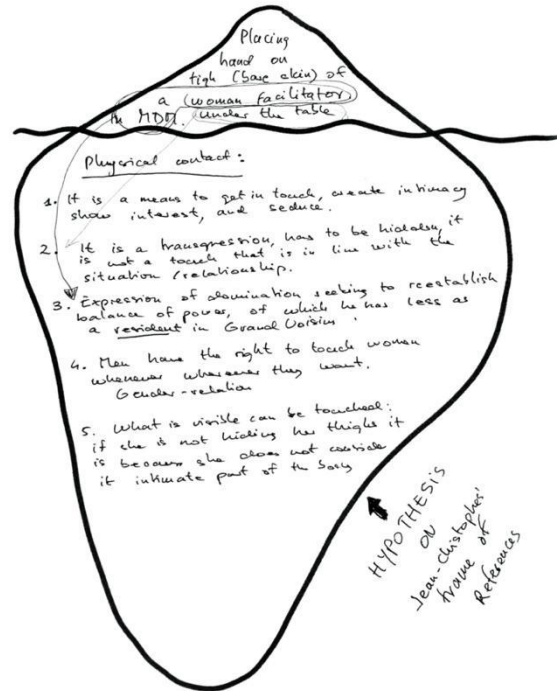 Placing
hand on
tigh (bare skin) of
a (woman facilitator)
in MDM. under the table
Physical contact:
1. It is a means to get in touch, create intimacy
show interest, and seduce.
2. It is a transgression, has to be hidden, it
is not a touch that is in line with the
situation/relationship.
3. Expression of domination seeking to reestablish
balance of power, of which he has less as
a resident in Grand Voisins
4. Men have the right to touch women
whenever wherever they want.
Gender-relation
5. What is visible can be touched:
if she is not hiding her thighs it
is because she does not conside
it intimate part of th body
HYPOTHESIS
ON
Jean-Christophes'
frame of
References